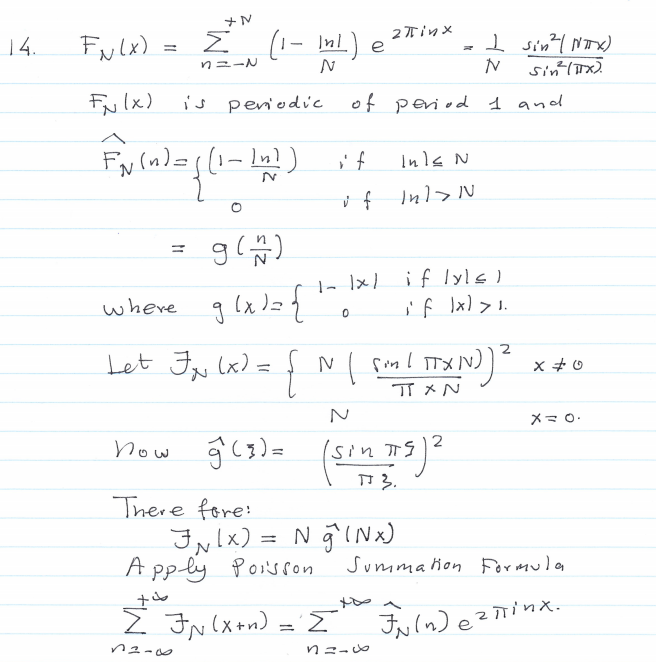 14. F_N(x) = \sum_{n=-N}^{+N} (1 - |n|/N) e^{2πinx} = 1/N sin²(Nπx)/sin²(πx).
F_N(x) is periodic of period 1 and
\hat{F}_N(n) = { (1 - |n|/N) if |n| ≤ N
0 if |n| > N
= g(n/N)
where g(x) = { 1 - |x| if |x| ≤ 1
0 if |x| > 1.
Let ℱ_N(x) = { N (sin(πxN)/πxN)² x ≠ 0
N x = 0.
Now ĝ(ξ) = (sin πξ/πξ.)²
There fore:
ℱ_N(x) = N ĝ(Nx)
Apply Poisson Summation Formula
\sum_{n=-∞}^{+∞} ℱ_N(x+n) = \sum_{n=-∞}^{+∞} \hat{ℱ}_N(n) e^{2πinx}.